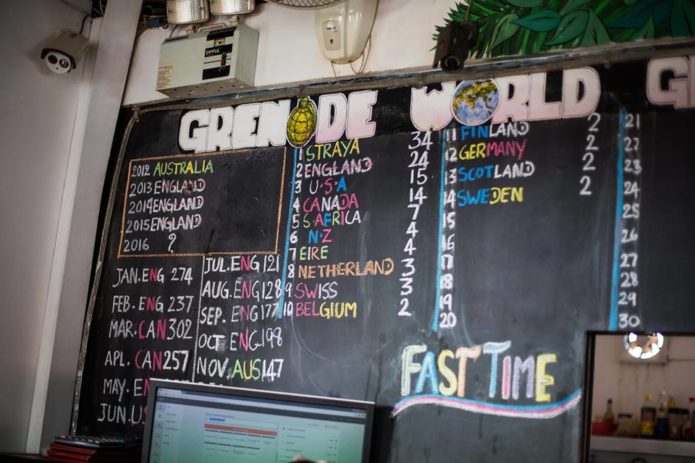 GRENADE WORLD G
2012 AUSTRALIA
2013 ENGLAND
2014 ENGLAND
2015 ENGLAND
2016 ?
JAN. ENG 274
FEB. ENG 237
MAR. CAN 302
APL. CAN 257
MAY. EN
JUN. US
JUL. ENG 121
AUG. ENG 128
SEP. ENG 177
OCT ENG 198
NOV. AUS 147
1 STRAYA 34
2 ENGLAND 24
3 U·S·A 15
4 CANADA 14
5 S·AFRICA 7
6 N·Z 4
7 EIRE 4
8 NETHERLAND 3
9 SWISS 3
10 BELGIUM 2
11 FINLAND 2
12 GERMANY 2
13 SCOTLAND 2
14 SWEDEN 2
15
16
17
18
19
20
21
23
24
25
26
27
28
29
30
FAST TIME
OPPLE